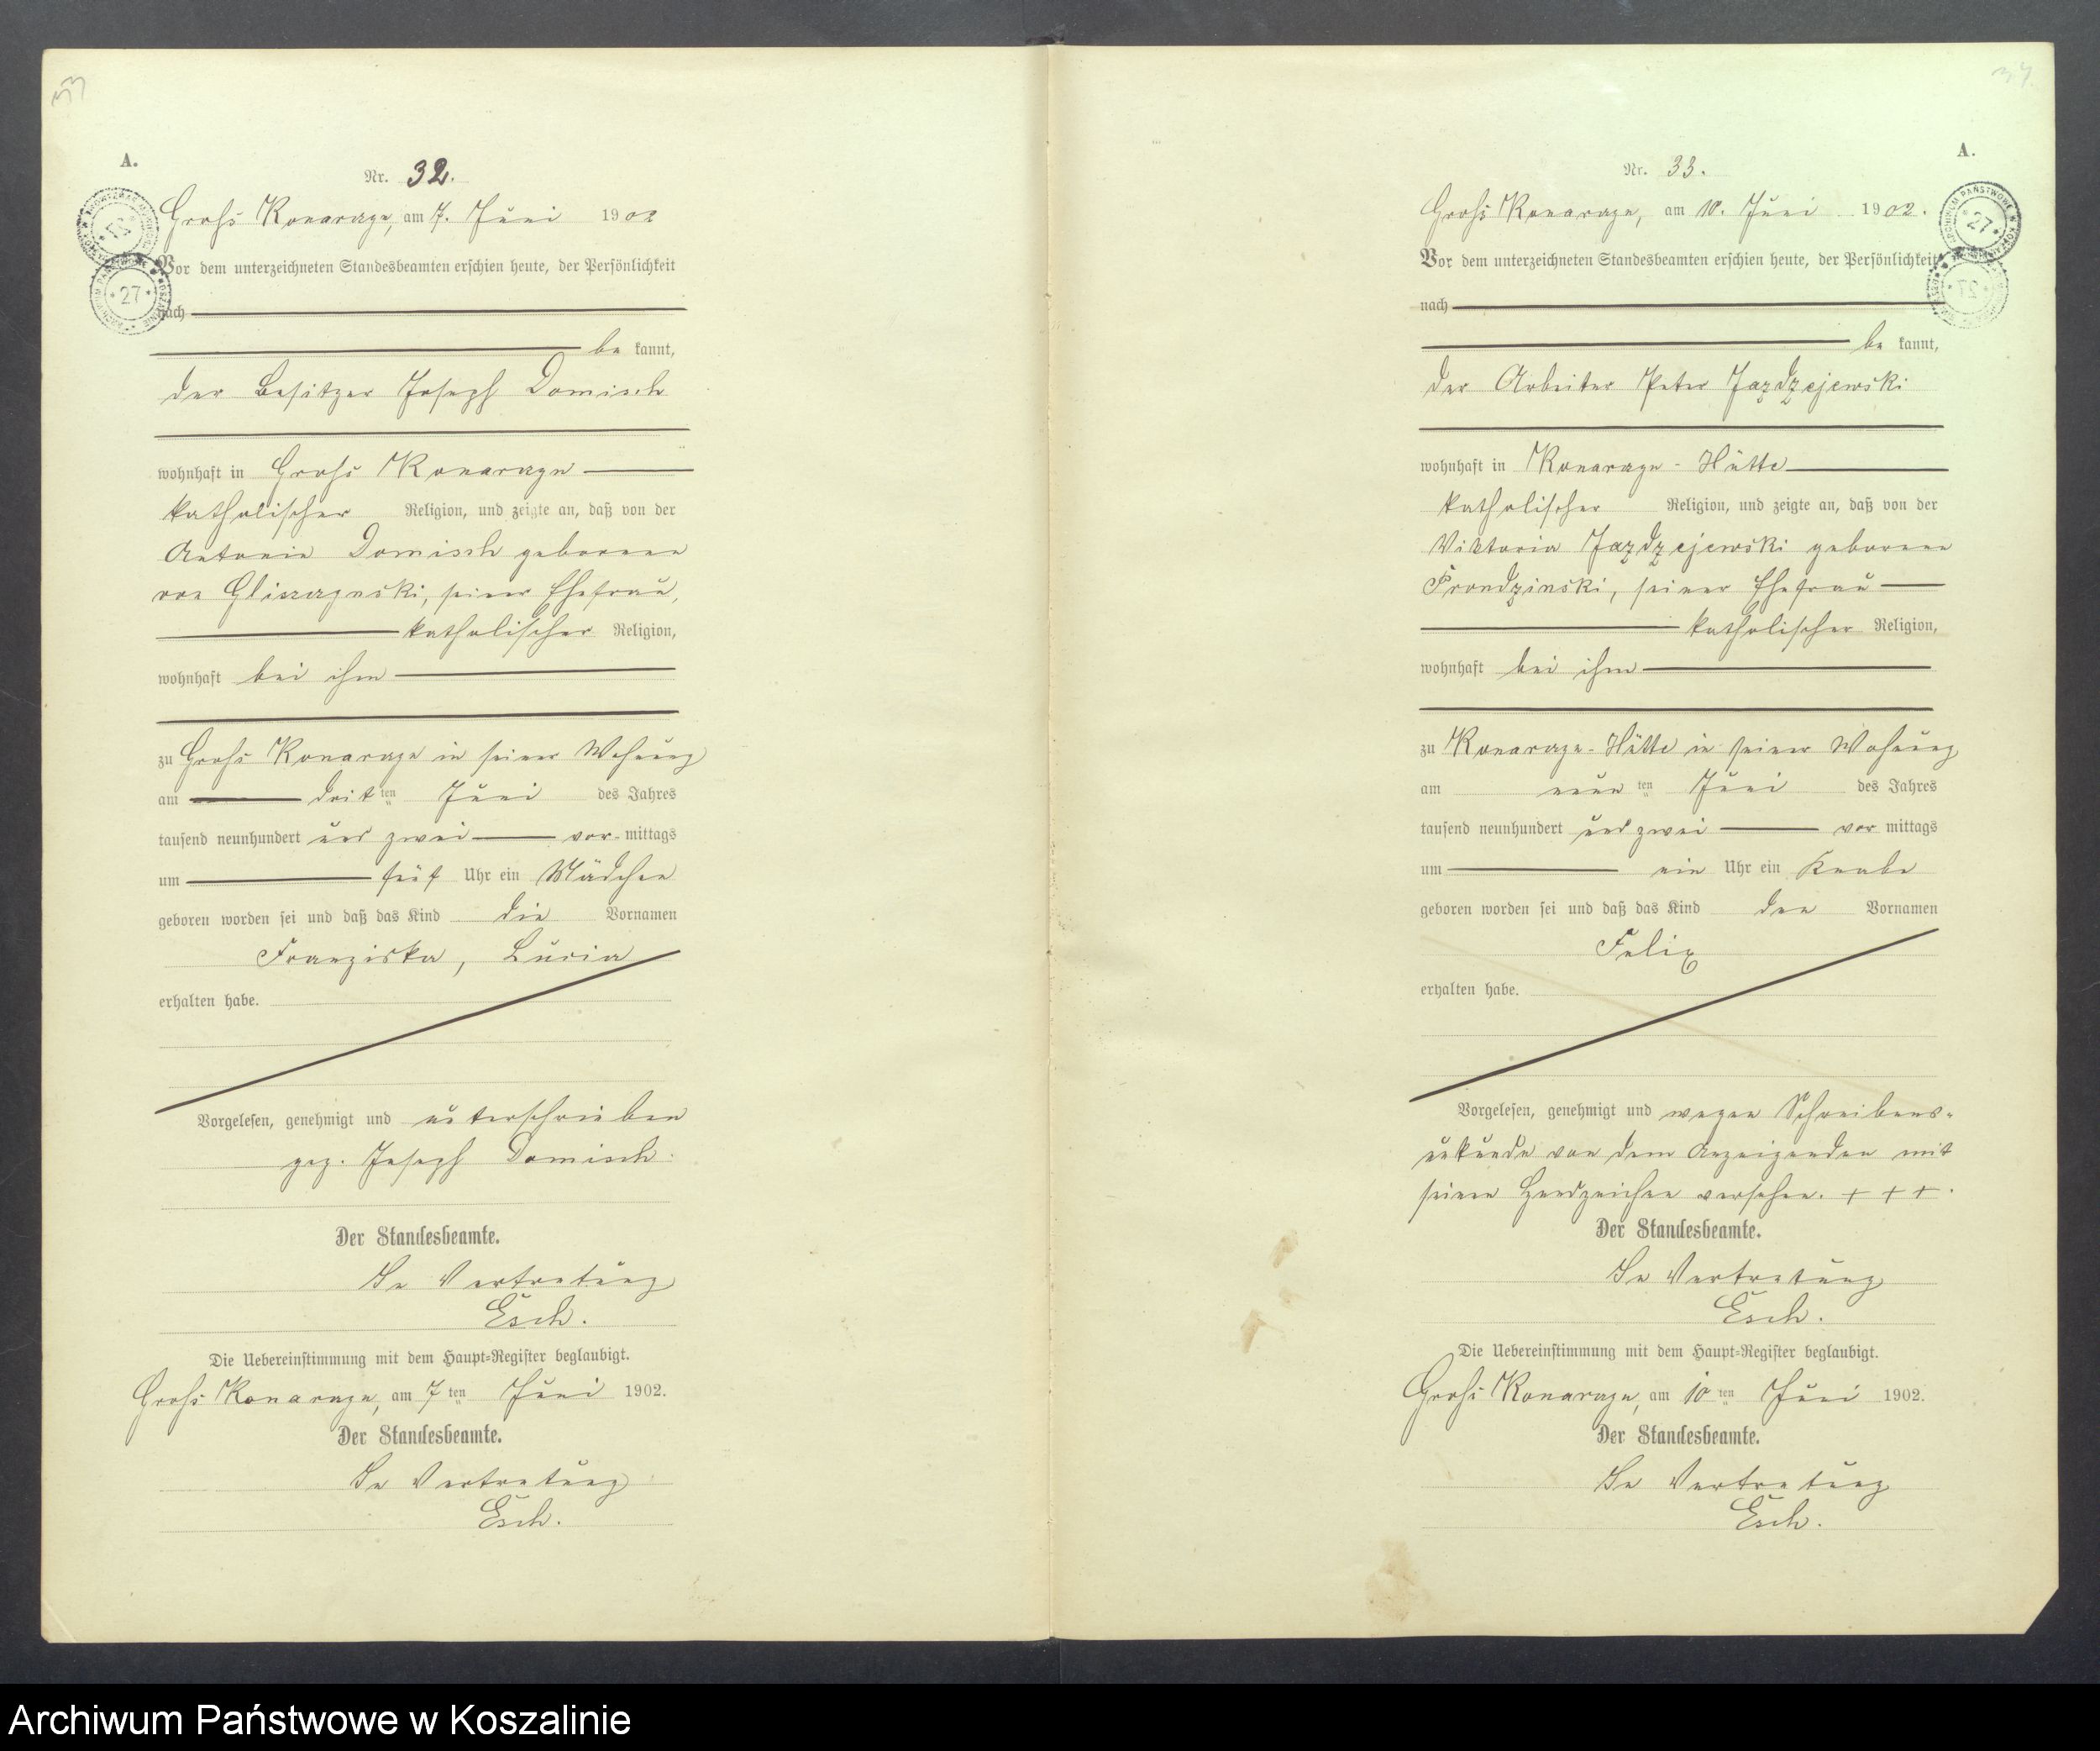 33
A.
Nr. 32.
Groß Konarczyn, am 7. Juni 1902
Vor dem unterzeichneten Standesbeamten erschien heute, der Persönlichkeit
nach
be kannt,
der Besitzer Joseph Domisch
wohnhaft in Groß Konarczyn
katholischer Religion, und zeigte an, daß von der
Antonie Domisch geborenen
von Gliszczynski, seiner Ehefrau,
katholischer Religion,
wohnhaft bei ihm
zu Groß Konarczyn in seiner Wohnung
am dritten Juni des Jahres
tausend neunhundert und zwei vor mittags
um fünf Uhr ein Mädchen
geboren worden sei und daß das Kind die Vornamen
Franziska, Lucia
erhalten habe.
Vorgelesen, genehmigt und unterschrieben
gez. Joseph Domisch.
Der Standesbeamte.
In Vertretung
Esch.
Die Uebereinstimmung mit dem Haupt=Register beglaubigt.
Groß Konarczyn, am 7ten Juni 1902.
Der Standesbeamte.
In Vertretung
Esch.
34
A.
Nr. 33.
Groß Konarczyn, am 10. Juni 1902.
Vor dem unterzeichneten Standesbeamten erschien heute, der Persönlichkeit
nach
be kannt,
der Arbeiter Peter Jazdzejewski
wohnhaft in Konarczyn - Hütte
katholischer Religion, und zeigte an, daß von der
Viktoria Jazdzejewski geborene
Prondzinski, seiner Ehefrau
katholischer Religion,
wohnhaft bei ihm
zu Konarczyn - Hütte in seiner Wohnung
am neunten Juni des Jahres
tausend neunhundert und zwei vor mittags
um ein Uhr ein Knabe
geboren worden sei und daß das Kind den Vornamen
Felix
erhalten habe.
Vorgelesen, genehmigt und wegen Schreibens-
unkunde von dem Anzeigenden mit
seinen Handzeichen versehen. + + + .
Der Standesbeamte.
In Vertretung
Esch.
Die Uebereinstimmung mit dem Haupt=Register beglaubigt.
Groß Konarczyn, am 10ten Juni 1902.
Der Standesbeamte.
In Vertretung
Esch.
Archiwum Państwowe w Koszalinie